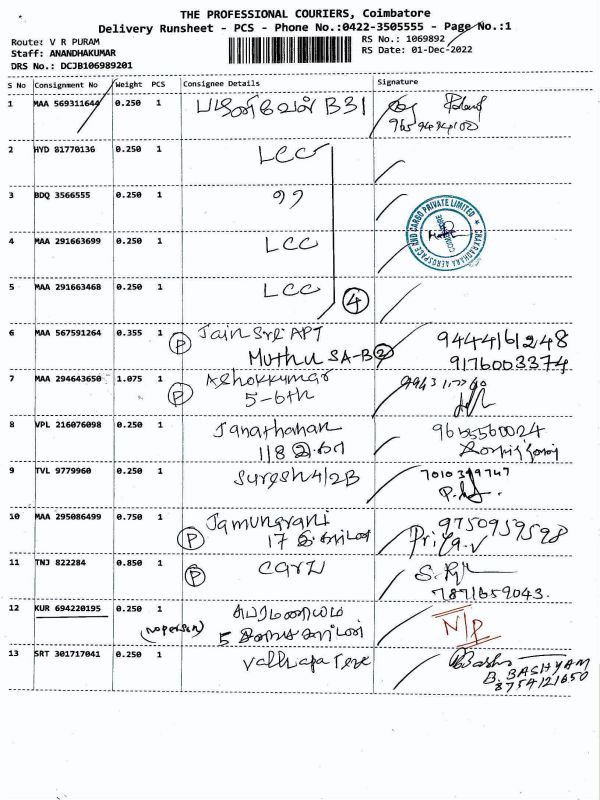 THE PROFESSIONAL COURIERS, Coimbatore
Delivery Runsheet - PCS - Phone No.:0422-3505555 - Page No.:1
Route: V R PURAM
RS No.: 1069892
Staff: ANANDHAKUMAR
RS Date: 01-Dec-2022
DRS No.: DCJB106989201
S No Consignment No Weight PCS Consignee Details Signature
1 MAA 569311644 0.250 1 பழனிவேல் B31
2 HYD 81770136 0.250 1 LCC
3 BDQ 3566555 0.250 1 99
CHAKRADHARA AEROSPACE AND CARGO PRIVATE LIMITED
COIMBATORE
4 MAA 291663699 0.250 1 LCC
5 MAA 291663468 0.250 1 LCC
4
6 MAA 567591264 0.355 1 P Jain Sre APT 9444161248
Muthu SA-B2 9176003374
7 MAA 294643650 1.075 1 P Ashokkumar
5-6th
8 VPL 216076098 0.250 1 Janathanan 9655560024
118
9 TVL 9779960 0.250 1 Suresh 4/2B 7010319747
10 MAA 295086499 0.750 1 P Jamunarani 9750959598
17 Priya.V
11 TNJ 822284 0.850 1 P
7871659043.
12 KUR 694220195 0.250 1 N/P
(no person) 5
13 SRT 301717041 0.250 1
B. BASHYAM
8754121650